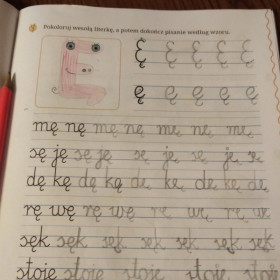 Pokoloruj wesołą literkę, a potem dokończ pisanie według wzoru.
Ę Ę Ę Ę Ę
ę ę ę ę ę
mę nę mę nę mę nę mę
sę ję sę ję sę ję sę ję sę
dę kę dę kę dę kę dę kę
rę wę rę wę rę wę rę wę
sęk sęk sęk sęk sęk sęk
stoję stoję stoję stoję stoję